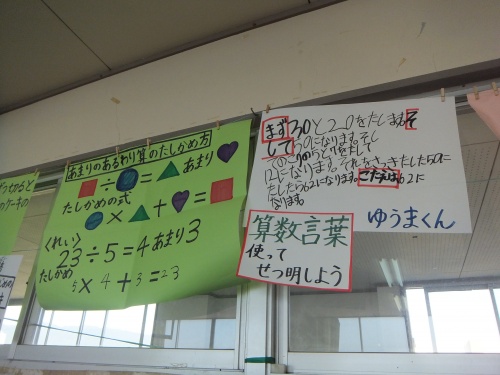 あまりのあるわり算のたしかめ方
÷ = あまり
たしかめの式
× + =
〈れい〉
23÷5=4あまり3
たしかめ
5×4+3=23
まず30と20をたします。そ
して50になります。
12になります。それをさっきたした50に
たしたら62になります。こたえは62に
なります。
ゆうまくん
算数言葉
使って
せつ明しよう